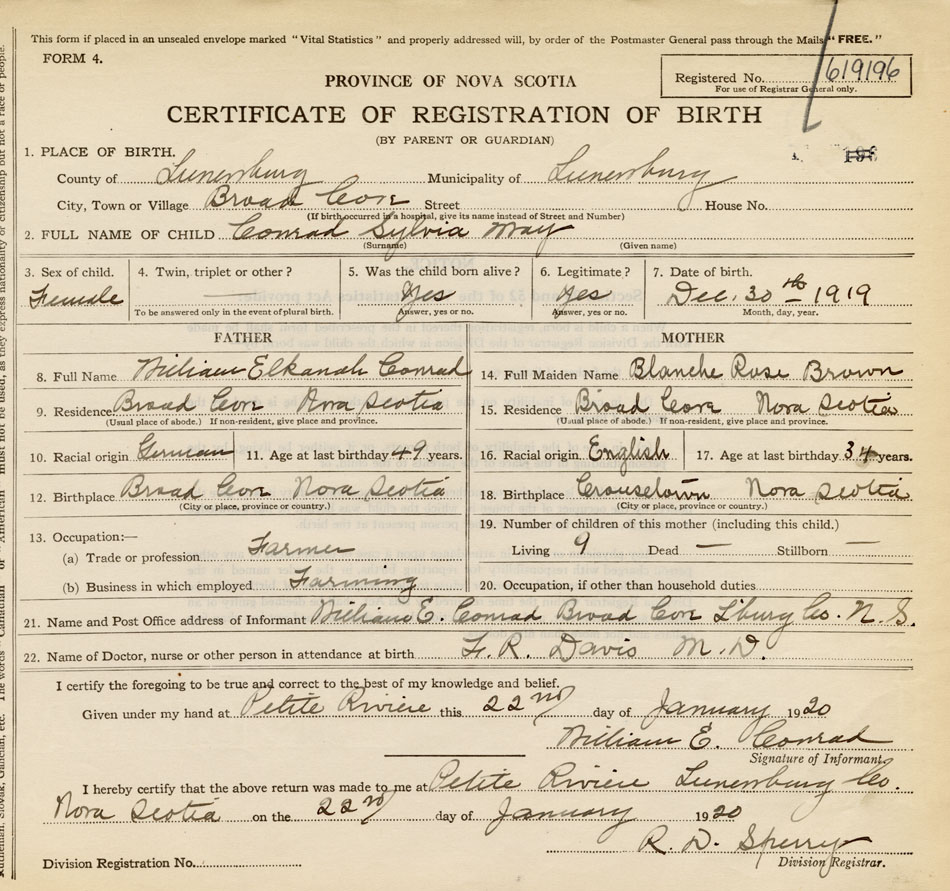 This form if placed in an unsealed envelope marked "Vital Statistics" and properly addressed will, by order of the Postmaster General pass through the Mails "FREE."
FORM 4.
Registered No. 619196
For use of Registrar General only.
PROVINCE OF NOVA SCOTIA
CERTIFICATE OF REGISTRATION OF BIRTH
(BY PARENT OR GUARDIAN)
1. PLACE OF BIRTH.
County of Lunenburg Municipality of Lunenburg
City, Town or Village Broad Cove Street House No.
(If birth occurred in a hospital, give its name instead of Street and Number)
2. FULL NAME OF CHILD Conrad Sylvia May
(Surname) (Given name)
3. Sex of child. 4. Twin, triplet or other? 5. Was the child born alive? 6. Legitimate? 7. Date of birth.
Female — Yes Yes Dec. 30th – 1919
To be answered only in the event of plural birth. Answer, yes or no. Answer, yes or no. Month, day, year.
FATHER MOTHER
8. Full Name William Elkanah Conrad
9. Residence Broad Cove Nova Scotia
(Usual place of abode.) If non-resident, give place and province.
10. Racial origin German 11. Age at last birthday 49 years.
12. Birthplace Broad Cove Nova Scotia
(City or place, province or country.)
13. Occupation:—
(a) Trade or profession Farmer
(b) Business in which employed Farming
14. Full Maiden Name Blanche Rose Brown
15. Residence Broad Cove Nova Scotia
(Usual place of abode.) If non-resident, give place and province.
16. Racial origin English 17. Age at last birthday 34 years.
18. Birthplace Crousetown Nova Scotia
(City or place, province or country.)
19. Number of children of this mother (including this child.)
Living 9 Dead — Stillborn —
20. Occupation, if other than household duties
21. Name and Post Office address of Informant William E. Conrad Broad Cove L'burg Co. N. S.
22. Name of Doctor, nurse or other person in attendance at birth F. R. Davis M. D.
I certify the foregoing to be true and correct to the best of my knowledge and belief.
Given under my hand at Petite Riviere this 22nd day of January 1920
William E. Conrad
Signature of Informant.
I hereby certify that the above return was made to me at Petite Riviere Lunenburg Co.
Nova Scotia on the 22nd day of January 1920
R. D. Sperry
Division Registrar.
Division Registration No.